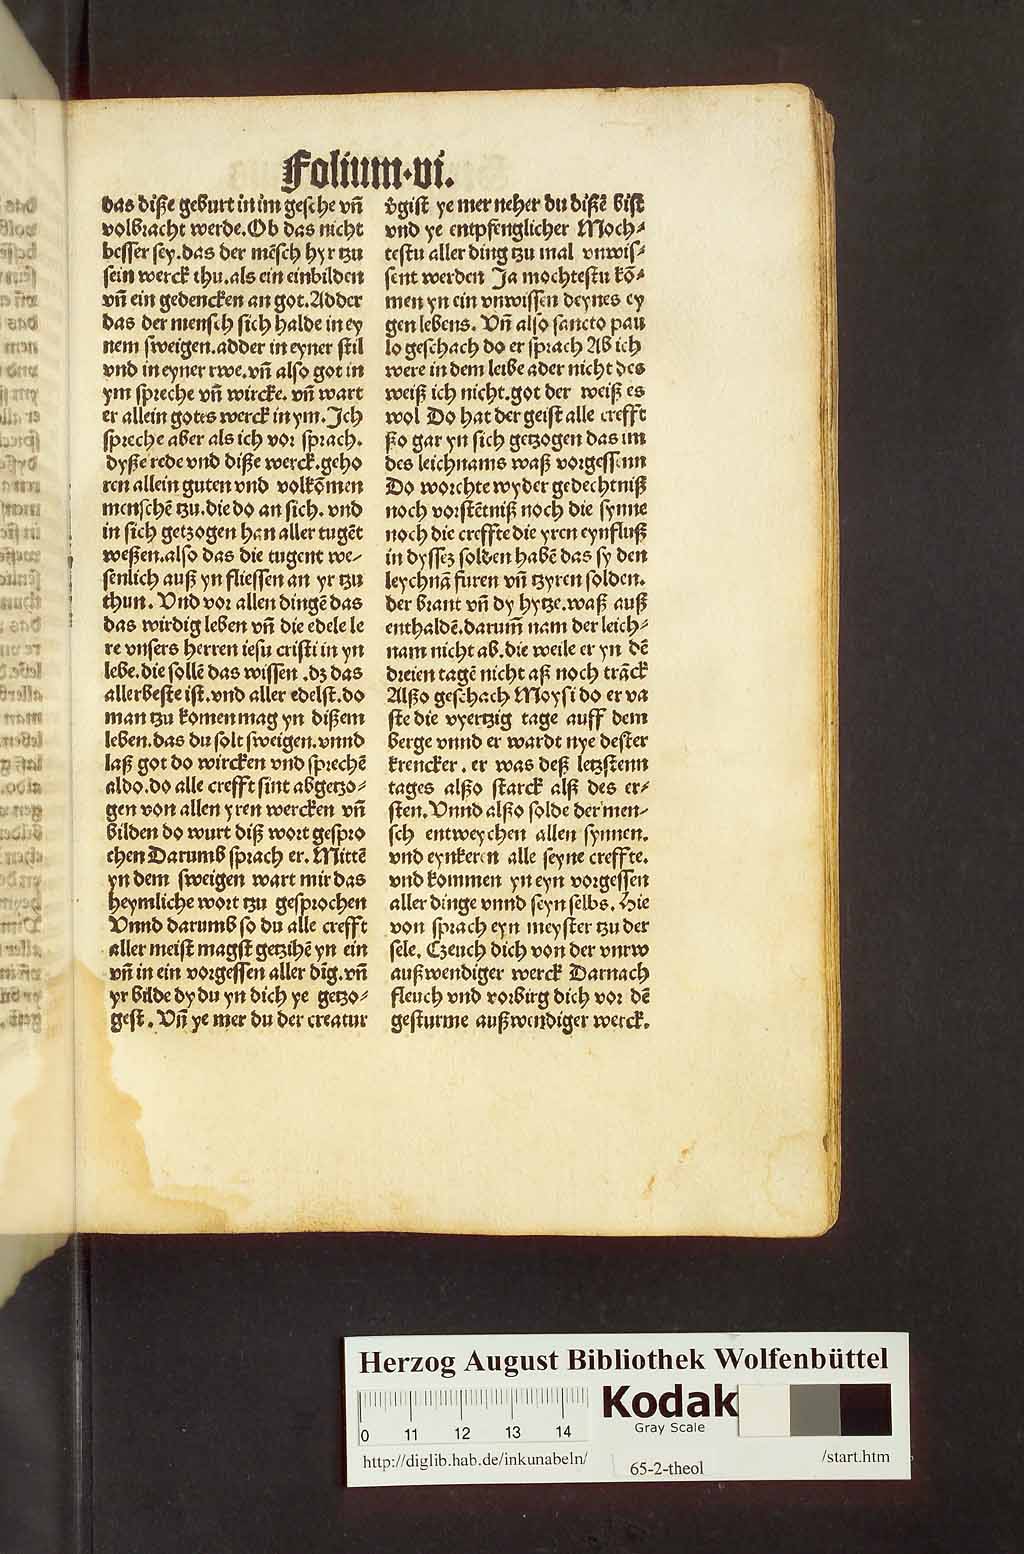 Folium·vi.
das diße geburt in im geschehe vn̄
volbracht werde. Ob das nicht
besser sey. das der mēsch hyr tzu
sein werck thu. als ein einbilden
vn̄ ein gedencken an got. Adder
das der mensch sich halde in ey
nem sweigen. adder in eyner stil
vnd in eyner rwe. vn̄ also got in
ym spreche vn̄ wircke. vn̄ wart
er allein gotes werck in ym. Ich
spreche aber als ich vor sprach.
dyße rede vnd diße werck. geho
ren allein guten vnd volkōmen
menschē tzu. die do an sich. vnd
in sich getzogen han aller tugēt
weßen. also das die tugent we-
senlich auß yn fliessen an yr tzu
thun. Vnd vor allen dingē das
das wirdig leben vn̄ die edele le
re vnsers herren iesu cristi in yn
lebe. die sollē das wissen .dz das
allerbeste ist. vnd aller edelst. do
man tzu komen mag yn dißem
leben. das du solt sweigen. vnnd
laß got do wircken vnd sprechē
aldo. do alle crefft sint abgetzo-
gen von allen yren wercken vn̄
bilden do wurt diß wort gespro
chen Darumb sprach er. Mittē
yn dem sweigen wart mir das
heymliche wort tzu gesprochen
Vnnd darumb so du alle crefft
aller meist magst getzihē yn ein
vn̄ in ein vorgessen aller dīg. vn̄
yr bilde dy du yn dich ye getzo-
gest. Vn̄ ye mer du der creatur
v̄gist ye mer neher du dißē bist
vnd ye entpfenglicher Moch-
testu aller ding tzu mal vnwis-
sent werden Ja mochtestu kō-
men yn ein vnwissen deynes ey
gen lebens. Vn̄ also sancto pau
lo geschach do er sprach Ab ich
were in dem leibe ader nicht des
weiß ich nicht. got der weiß es
wol Do hat der geist alle crefft
ßo gar yn sich getzogen das im
des leichnams waß vorgessenn
Do worchte wyder gedechtniß
noch vorstētniß noch die synne
noch die creffte die yren eynfluß
in dyssez solden habē das sy den
leychnā furen vn̄ tzyren solden.
der brant vn̄ dy hytze. waß auß
enthaldē. darum̄ nam der leich-
nam nicht ab. die weile er yn dē
dreien tagē nicht aß noch trāck
Alßo geschach Moysi do er va
ste die vyertzig tage auff dem
berge vnnd er wardt nye dester
krencker. er was deß letzstenn
tages alßo starck alß des er-
sten. Vnnd alßo solde der men-
sch entweychen allen synnen.
vnd eynkeren alle seyne creffte.
vnd kommen yn eyn vorgessen
aller dinge vnnd seyn selbs. Hie
von sprach eyn meyster tzu der
sele. Czeuch dich von der vnrw
außwendiger werck Darnach
fleuch vnd vorbirg dich vor dē
gesturme außwendiger werck.
Herzog August Bibliothek Wolfenbüttel
Kodak
Gray Scale
0 11 12 13 14
http://diglib.hab.de/inkunabeln/
65-2-theol
/start.htm